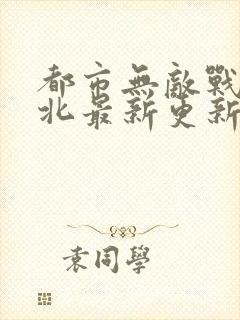 都市無敵戰
北最新更新
袁同學